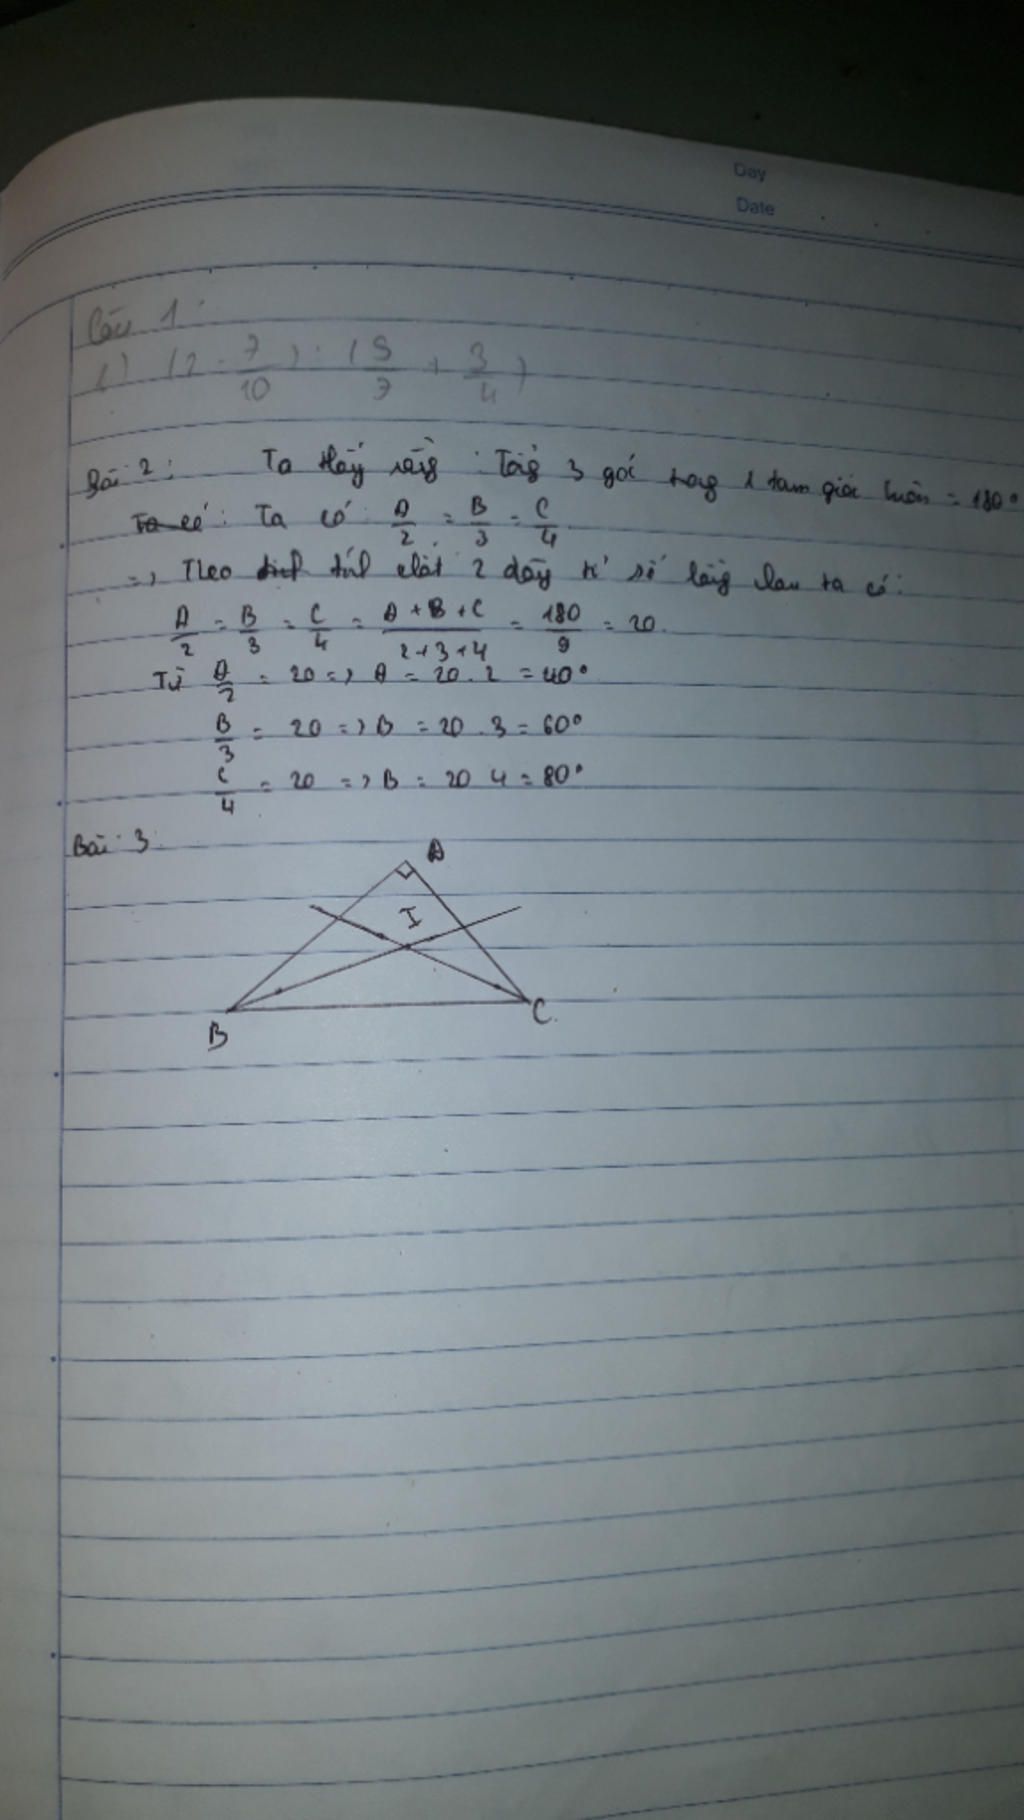 Day
Date
Câu 1:
1) (2 - 7/10) : (5/7 + 3/4)
Bài 2: Ta thấy rằng: Tổng 3 góc trong 1 tam giác luôn = 180°
Ta có: Ta có A/2 = B/3 = C/4
=> Theo tính chất 2 dãy tỉ số bằng nhau ta có:
A/2 = B/3 = C/4 = A+B+C/2+3+4 = 180/9 = 20.
Từ A/2 = 20 => A = 20.2 = 40°
B/3 = 20 => B = 20.3 = 60°
C/4 = 20 => B = 20 4 = 80°
Bài 3
A
I
B
C